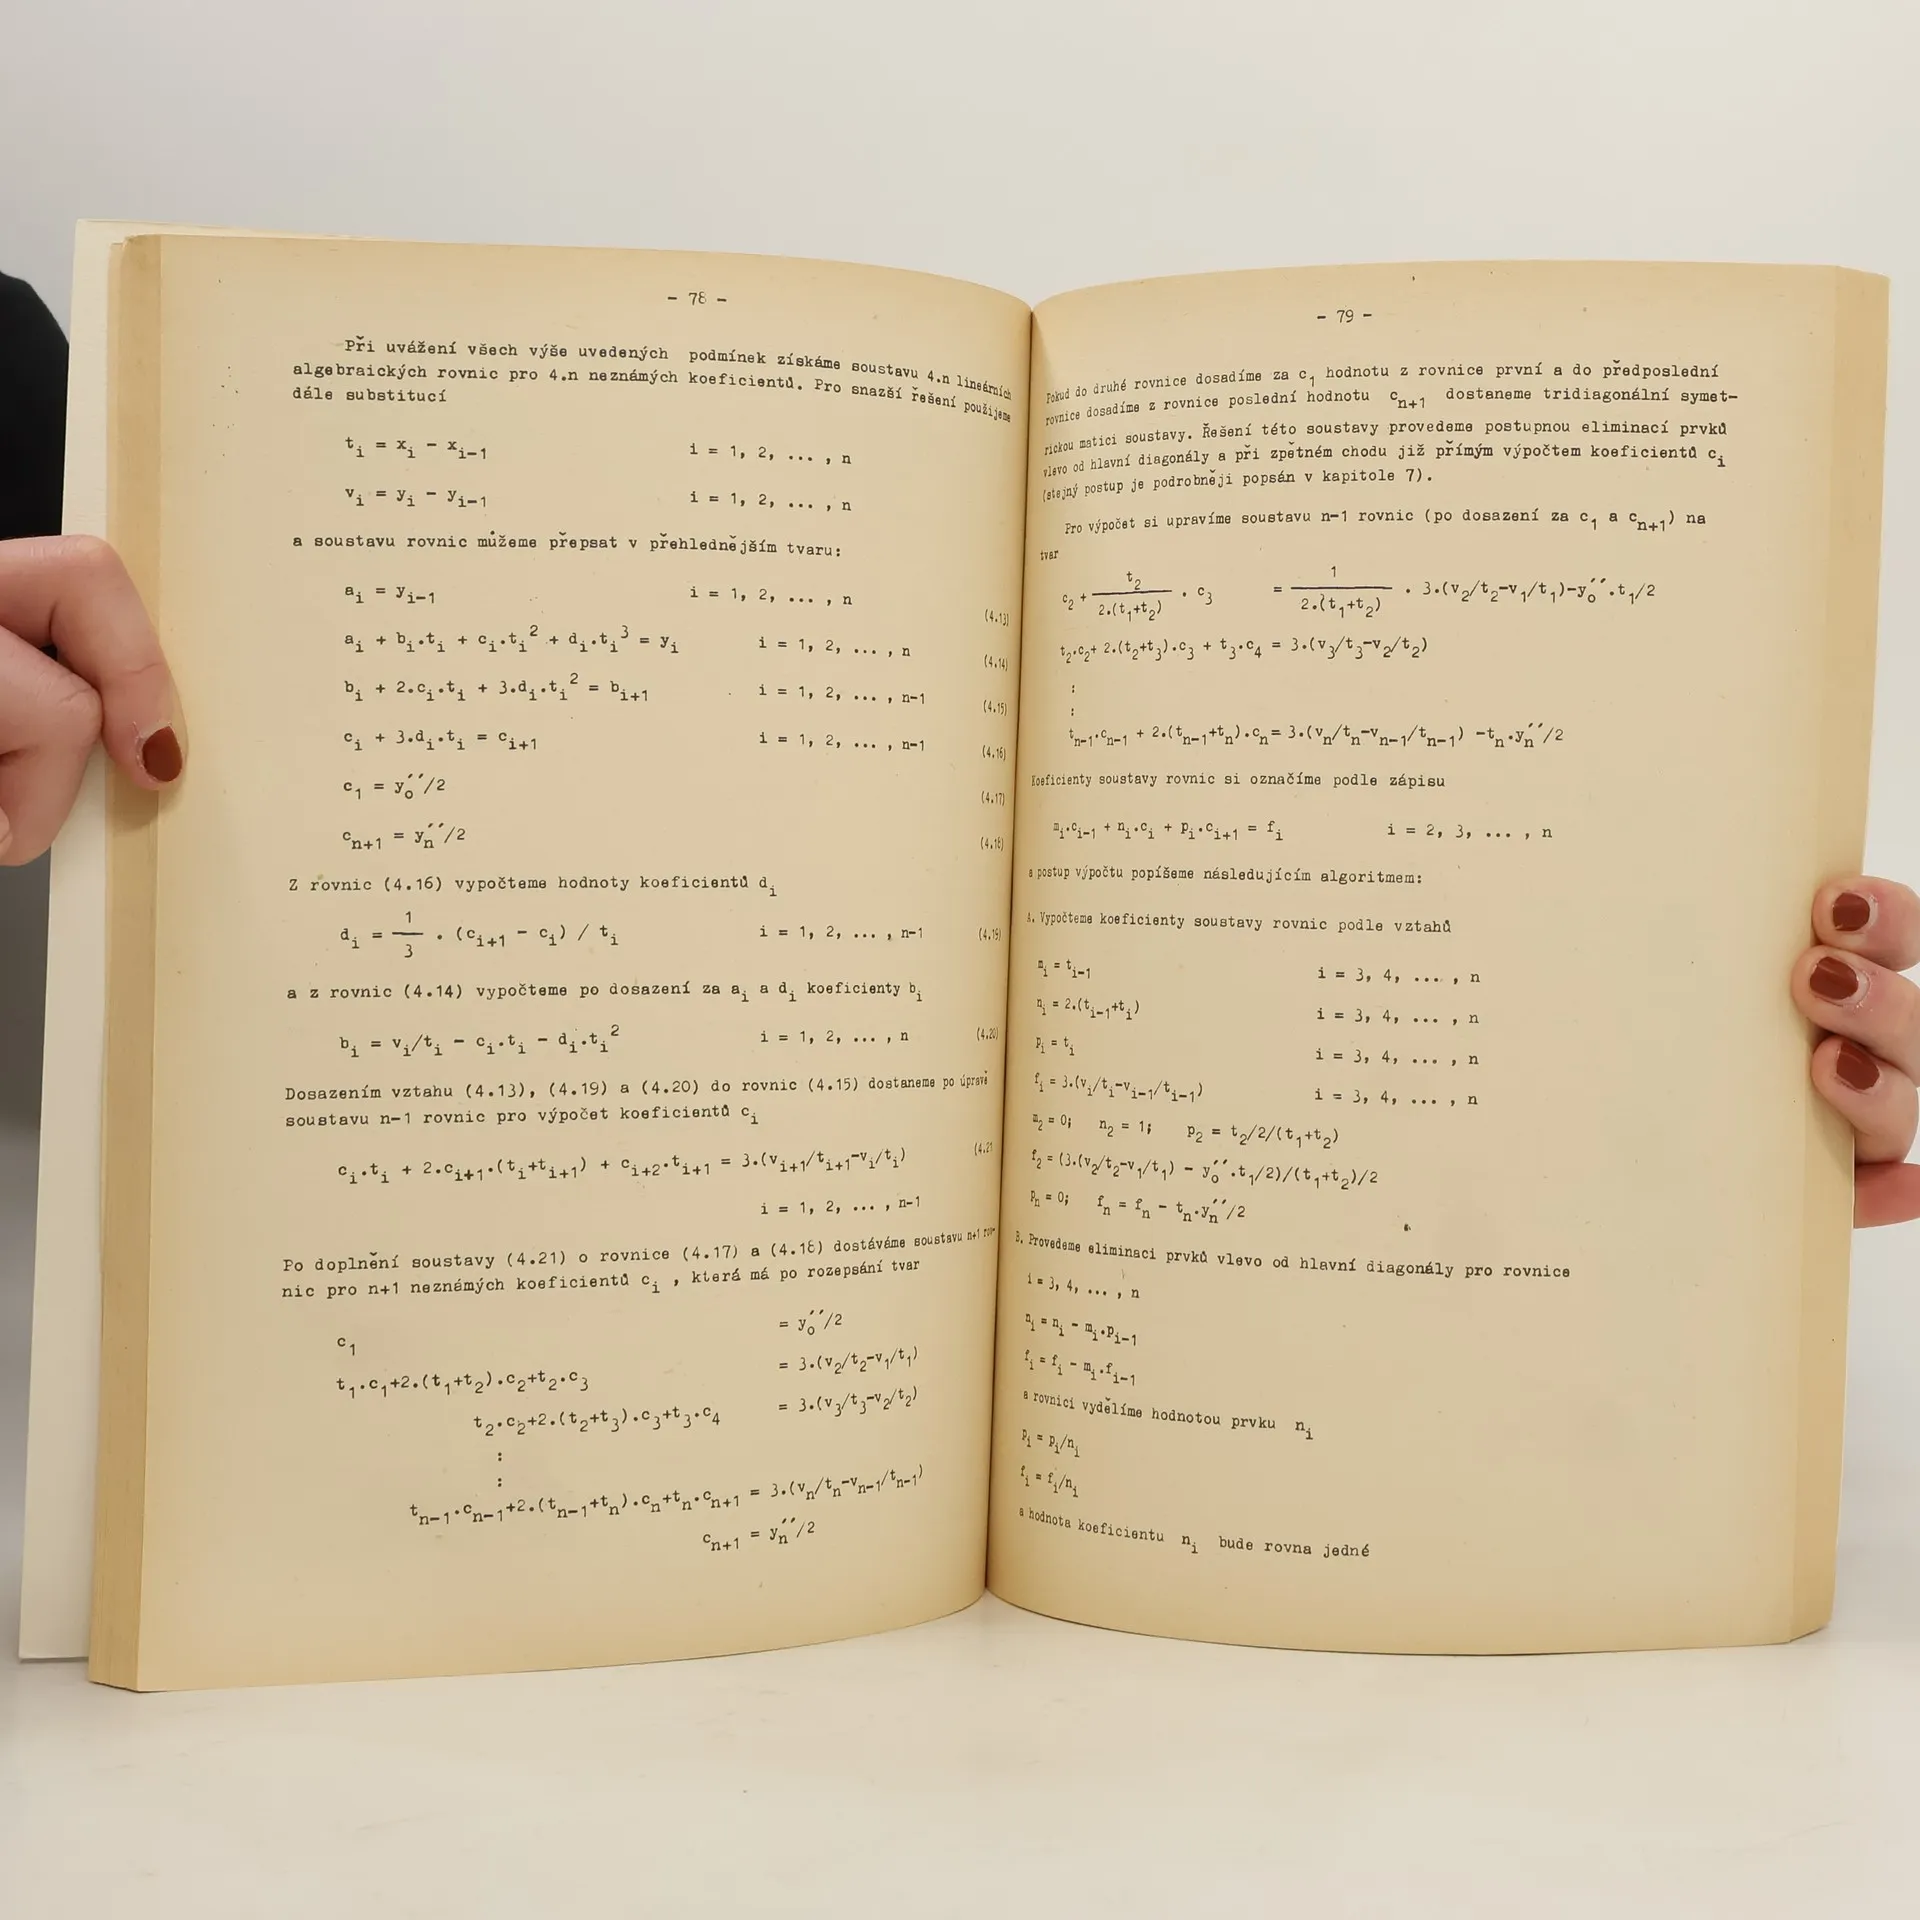 - 78 -
Při uvážení všech výše uvedených podmínek získáme soustavu 4.n lineárních
algebraických rovnic pro 4.n neznámých koeficientů. Pro snazší řešení použijeme
dále substitucí
t_i = x_i - x_{i-1} i = 1, 2, ... , n
v_i = y_i - y_{i-1} i = 1, 2, ... , n
a soustavu rovnic můžeme přepsat v přehlednějším tvaru:
a_i = y_{i-1} i = 1, 2, ... , n (4.13)
a_i + b_i.t_i + c_i.t_i^2 + d_i.t_i^3 = y_i i = 1, 2, ... , n (4.14)
b_i + 2.c_i.t_i + 3.d_i.t_i^2 = b_{i+1} i = 1, 2, ... , n-1 (4.15)
c_i + 3.d_i.t_i = c_{i+1} i = 1, 2, ... , n-1 (4.16)
c_1 = y_o´´/2 (4.17)
c_{n+1} = y_n´´/2 (4.18)
Z rovnic (4.16) vypočteme hodnoty koeficientů d_i
d_i = 1/3 . (c_{i+1} - c_i) / t_i i = 1, 2, ... , n-1 (4.19)
a z rovnic (4.14) vypočteme po dosazení za a_i a d_i koeficienty b_i
b_i = v_i/t_i - c_i.t_i - d_i.t_i^2 i = 1, 2, ... , n (4.20)
Dosazením vztahu (4.13), (4.19) a (4.20) do rovnic (4.15) dostaneme po úpravě
soustavu n-1 rovnic pro výpočet koeficientů c_i
c_i.t_i + 2.c_{i+1}.(t_i+t_{i+1}) + c_{i+2}.t_{i+1} = 3.(v_{i+1}/t_{i+1}-v_i/t_i) (4.21
i = 1, 2, ... , n-1
Po doplnění soustavy (4.21) o rovnice (4.17) a (4.18) dostáváme soustavu n+1 rov-
nic pro n+1 neznámých koeficientů c_i , která má po rozepsání tvar
c_1 = y_o´´/2
t_1.c_1+2.(t_1+t_2).c_2+t_2.c_3 = 3.(v_2/t_2-v_1/t_1)
t_2.c_2+2.(t_2+t_3).c_3+t_3.c_4 = 3.(v_3/t_3-v_2/t_2)
:
:
t_{n-1}.c_{n-1}+2.(t_{n-1}+t_n).c_n+t_n.c_{n+1} = 3.(v_n/t_n-v_{n-1}/t_{n-1})
c_{n+1} = y_n´´/2
- 79 -
Pokud do druhé rovnice dosadíme za c_1 hodnotu z rovnice první a do předposlední
rovnice dosadíme z rovnice poslední hodnotu c_{n+1} dostaneme tridiagonální symet-
rickou matici soustavy. Řešení této soustavy provedeme postupnou eliminací prvků
vlevo od hlavní diagonály a při zpětném chodu již přímým výpočtem koeficientů c_i
(stejný postup je podrobněji popsán v kapitole 7).
Pro výpočet si upravíme soustavu n-1 rovnic (po dosazení za c_1 a c_{n+1}) na
tvar
c_2 + t_2/2.(t_1+t_2) . c_3 = 1/2.(t_1+t_2) . 3.(v_2/t_2-v_1/t_1)-y_o´´.t_1/2
t_2.c_2+ 2.(t_2+t_3).c_3 + t_3.c_4 = 3.(v_3/t_3-v_2/t_2)
:
:
t_{n-1}.c_{n-1} + 2.(t_{n-1}+t_n).c_n = 3.(v_n/t_n-v_{n-1}/t_{n-1}) -t_n.y_n´´/2
Koeficienty soustavy rovnic si označíme podle zápisu
m_i.c_{i-1} + n_i.c_i + p_i.c_{i+1} = f_i i = 2, 3, ... , n
a postup výpočtu popíšeme následujícím algoritmem:
A. Vypočteme koeficienty soustavy rovnic podle vztahů
m_i = t_{i-1} i = 3, 4, ... , n
n_i = 2.(t_{i-1}+t_i) i = 3, 4, ... , n
p_i = t_i i = 3, 4, ... , n
f_i = 3.(v_i/t_i-v_{i-1}/t_{i-1}) i = 3, 4, ... , n
m_2 = 0; n_2 = 1; p_2 = t_2/2/(t_1+t_2)
f_2 = (3.(v_2/t_2-v_1/t_1) - y_o´´.t_1/2)/(t_1+t_2)/2
p_n = 0; f_n = f_n - t_n.y_n´´/2
B. Provedeme eliminaci prvků vlevo od hlavní diagonály pro rovnice
i = 3, 4, ... , n
n_i = n_i - m_i.p_{i-1}
f_i = f_i - m_i.f_{i-1}
a rovnici vydělíme hodnotou prvku n_i
p_i = p_i/n_i
f_i = f_i/n_i
a hodnota koeficientu n_i bude rovna jedné